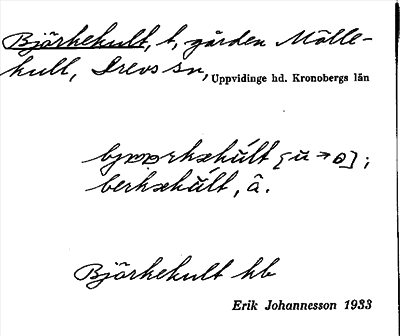 Björkekult, t, gården Mölle-
kull, Drevs sn, Uppvidinge hd. Kronobergs län
berkækúlt, â.
Björkekult hb
Erik Johannesson 1933